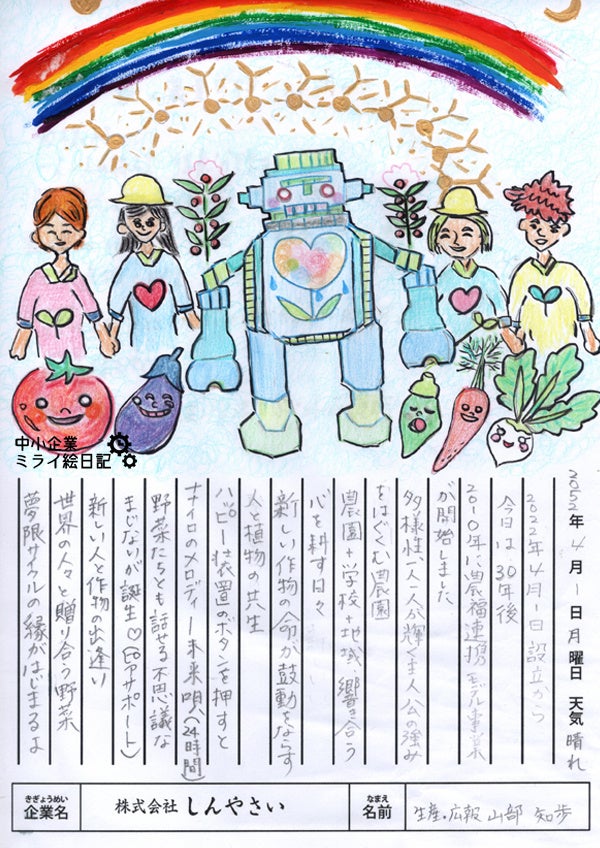 中小企業
ミライ絵日記
2052年 4月1日 月曜日 天気 晴れ
2022年4月1日 設立から
今日は30年後
2010年に農福連携モデル事業
が開始しました
多様性一人一人が輝く主人公の強み
をはぐくむ農園
農園+学校+地域 響き合う
心を耕す日々
新しい作物の命が鼓動をならす
人と植物の共生
ハッピー装置のボタンを押すと
ナナイロのメロディー未来唄へ(24時間)
野菜たちとも話せる不思議な
まじないが誕生♡(Eアサポート)
新しい人と作物の出逢い
世界の人々と贈り合う野菜
夢限サイクルの縁がはじまるよ
きぎょうめい
企業名
株式会社 しんやさい
なまえ
名前
生産・広報 山部 知歩